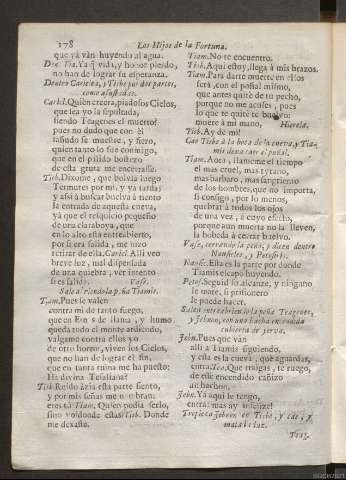 178 Los Hijos de la Fortuna.
que yà vàn huyendo al agua.
Den. Tia. Ya q̃ vida, y honor pierdo,
no han de lograr su esperanza.
Dentro Cariclea, y Tisbe por dos partes,
como asustadas.
Caricl. Quien creera, piadosos Cielos,
que sea yo la sepultada,
siendo Teagenes el muerto?
pues no dudo que con èl
sañudo se muestre, y fiero,
quien tanto lo fue conmigo,
que en el palido bostezo
de esta gruta me encerrasse.
Tisb. Dixome, que bolvia luego
Termutes por mi, y ya tarda;
y assi à buscar bolviò à tiento
la entrada de aquesta cueva,
yà que el resquicio pequeño
de una claraboya, que
en lo alto està entreabierto,
por si era salida, me hizo
retirar de ella. Caricl. Alli veo
breve luz, mal dispensada
de una quiebra, ver intento
si es salida. Vase.
Sale abriendo la peña Tiamis.
Tiam. Pues le valen
contra mi de tanto fuego,
que en Etnas de llama, y humo
queda todo el monte ardiendo,
valgame contra ellos yo
de otro horror, viven los Cielos,
que no han de lograr el fin,
que en tanta ruina me ha puesto:
Ha divina Tesaliana?
Tisb. Ruido àzia esta parte siento,
y por mis señas me nombran:
eres tu? Tiam. Quien podia serlo,
sino yo? donde estàs? Tisb. Donde
me dexaste.
Tiam. No te encuentro.
Tisb. Aqui estoy, llega à mis brazos.
Tiam. Para darte muerte en ellos
serà, con el puñal mismo,
que antes quitè de tu pecho,
porque no me acuses, pues
lo que te quitè te buelvo:
muere à mi mano, Hierela.
Tisb. Ay de mi!
Cae Tisbe à la boca de la cueva, y Tiamis
dexa caer el puñal.
Tiam. Aora, llameme el tiempo
el mas cruel, mas tyrano,
mas barbaro, mas sangriento
de los hombres, que no importa,
si consigo, por lo menos,
quebrar à todos los ojos
de una vez, à cuyo efecto,
porque aun muerta no la lleven,
la bobeda à cerrar buelvo.
Vase, cerrando la peña, y dizen dentro
Nausicles, y Petosiris.
Nausic. Esta es la parte por donde
Tiamis escapò huyendo.
Petos. Seguid su alcance, y ninguno
le mate, si prisionero
le puede hacer.
Salen entreabriendo la peña Teagenes,
y Jebnon, con una hacha encendida
cubierta de yerva.
Jebn. Pues que vàn
alli à Tiamis siguiendo,
y esta es la cueva, què aguardas,
entra. Tea. Que traigas, te ruego,
de esse encendido cañizo
un hachon.
Jebn. Ya aqui le tengo,
entra: mas ay infelize!
Tropieza Jebnon en Tisbe, y cae, y
mata la luz.
Teag.